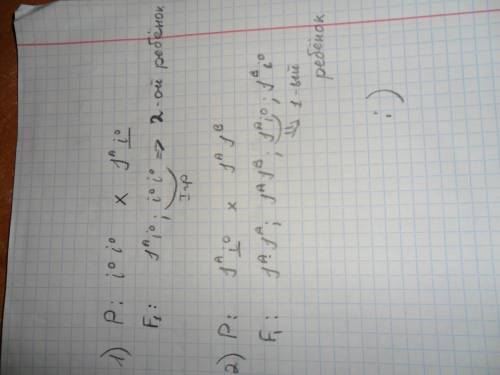 1) P: i⁰ i⁰ x Jᴬ i⁰
F₁: Jᴬ i⁰; i⁰ i⁰ => 2-ой ребёнок
I гр
2) P: Jᴬ i⁰ x Jᴬ Jᴮ
F₁: Jᴬ Jᴬ; Jᴬ Jᴮ; Jᴬ i⁰; Jᴮ i⁰
1-ый
ребёнок
:)